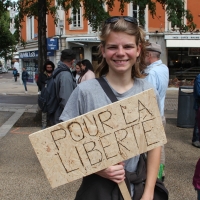 POUR LA
LIBERTÉ